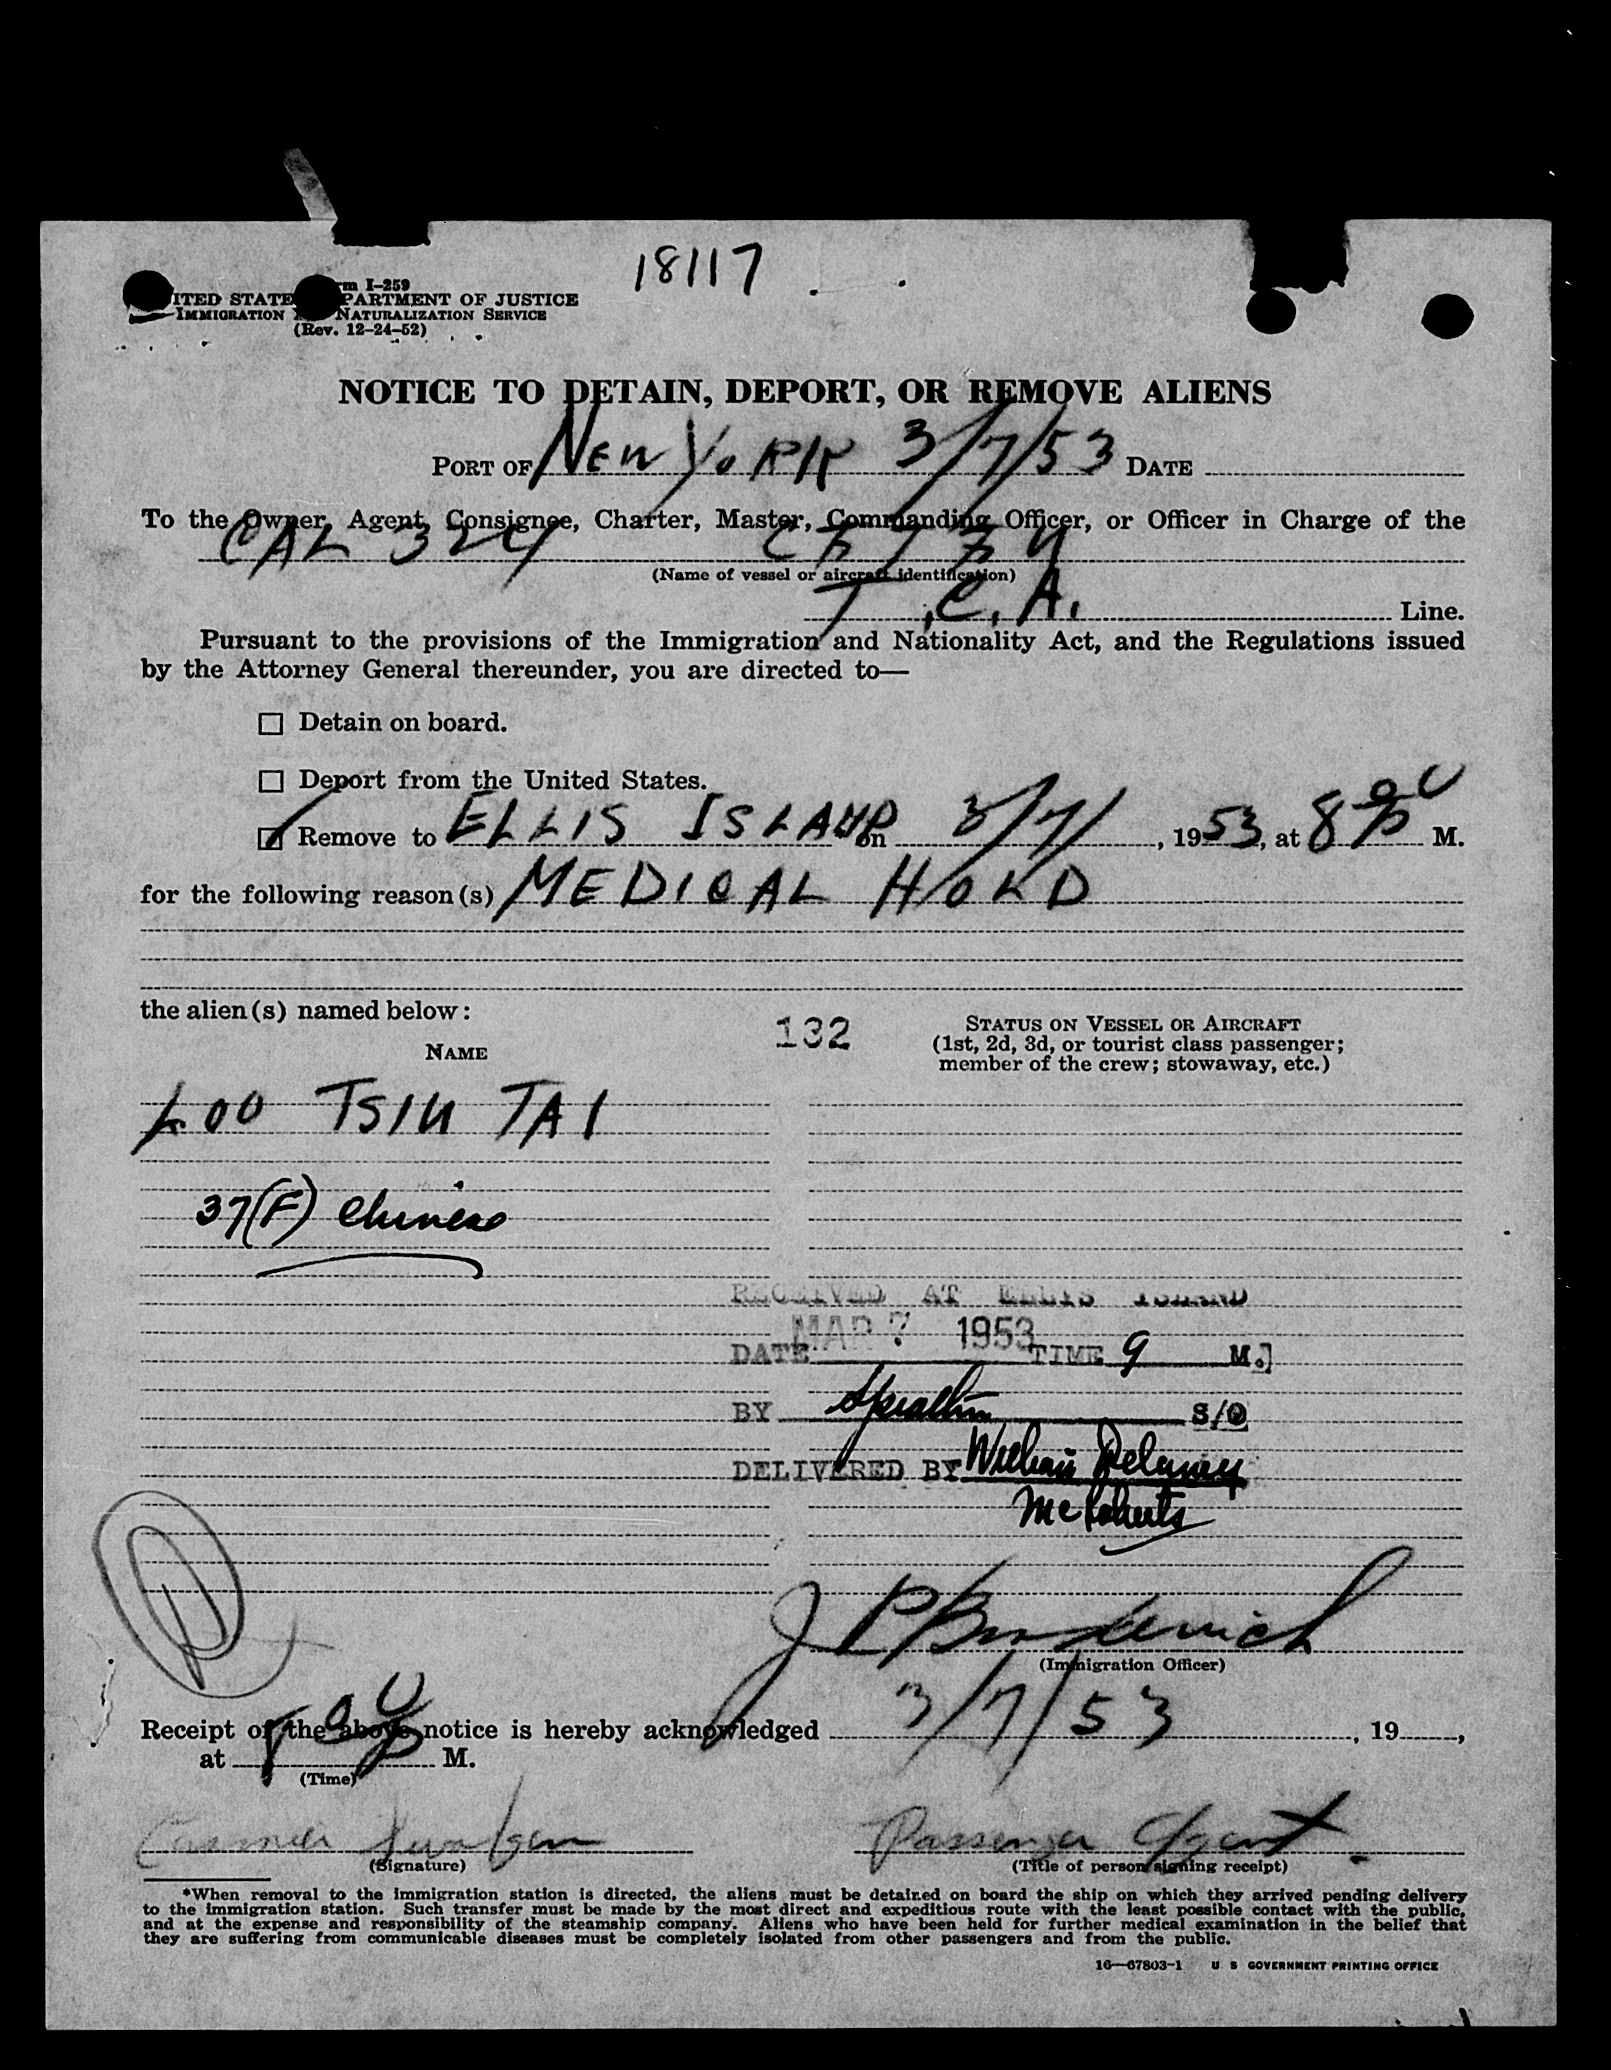 18117
m I-259
ITED STATE PARTMENT OF JUSTICE
IMMIGRATION NATURALIZATION SERVICE
(Rev. 12-24-52)
NOTICE TO DETAIN, DEPORT, OR REMOVE ALIENS
PORT OF NEW YORK 3/7/53 DATE
To the Owner, Agent, Consignee, Charter, Master, Commanding Officer, or Officer in Charge of the
CAL 324
(Name of vessel or aircraft identification)
T.C.A. Line.
Pursuant to the provisions of the Immigration and Nationality Act, and the Regulations issued
by the Attorney General thereunder, you are directed to—
Detain on board.
Deport from the United States.
Remove to ELLIS ISLAND on 3/7/, 1953, at 8 M.
for the following reason(s) MEDICAL HOLD
the alien(s) named below:
132
NAME
STATUS ON VESSEL OR AIRCRAFT
(1st, 2d, 3d, or tourist class passenger;
member of the crew; stowaway, etc.)
LOO TSIU TAI
37(F) Chinese
RECEIVED AT ELLIS ISLAND
DATE MAR 7 1953 TIME 9 M.
BY S/O
DELIVERED BY William Delaney
McRoberts
J P Broderick
(Immigration Officer)
Receipt of the above notice is hereby acknowledged 3/7/53, 19,
at M.
(Time)
Passenger Agent.
(Signature)
(Title of person signing receipt)
*When removal to the immigration station is directed, the aliens must be detained on board the ship on which they arrived pending delivery
to the immigration station. Such transfer must be made by the most direct and expeditious route with the least possible contact with the public,
and at the expense and responsibility of the steamship company. Aliens who have been held for further medical examination in the belief that
they are suffering from communicable diseases must be completely isolated from other passengers and from the public.
16—67803-1 U S GOVERNMENT PRINTING OFFICE